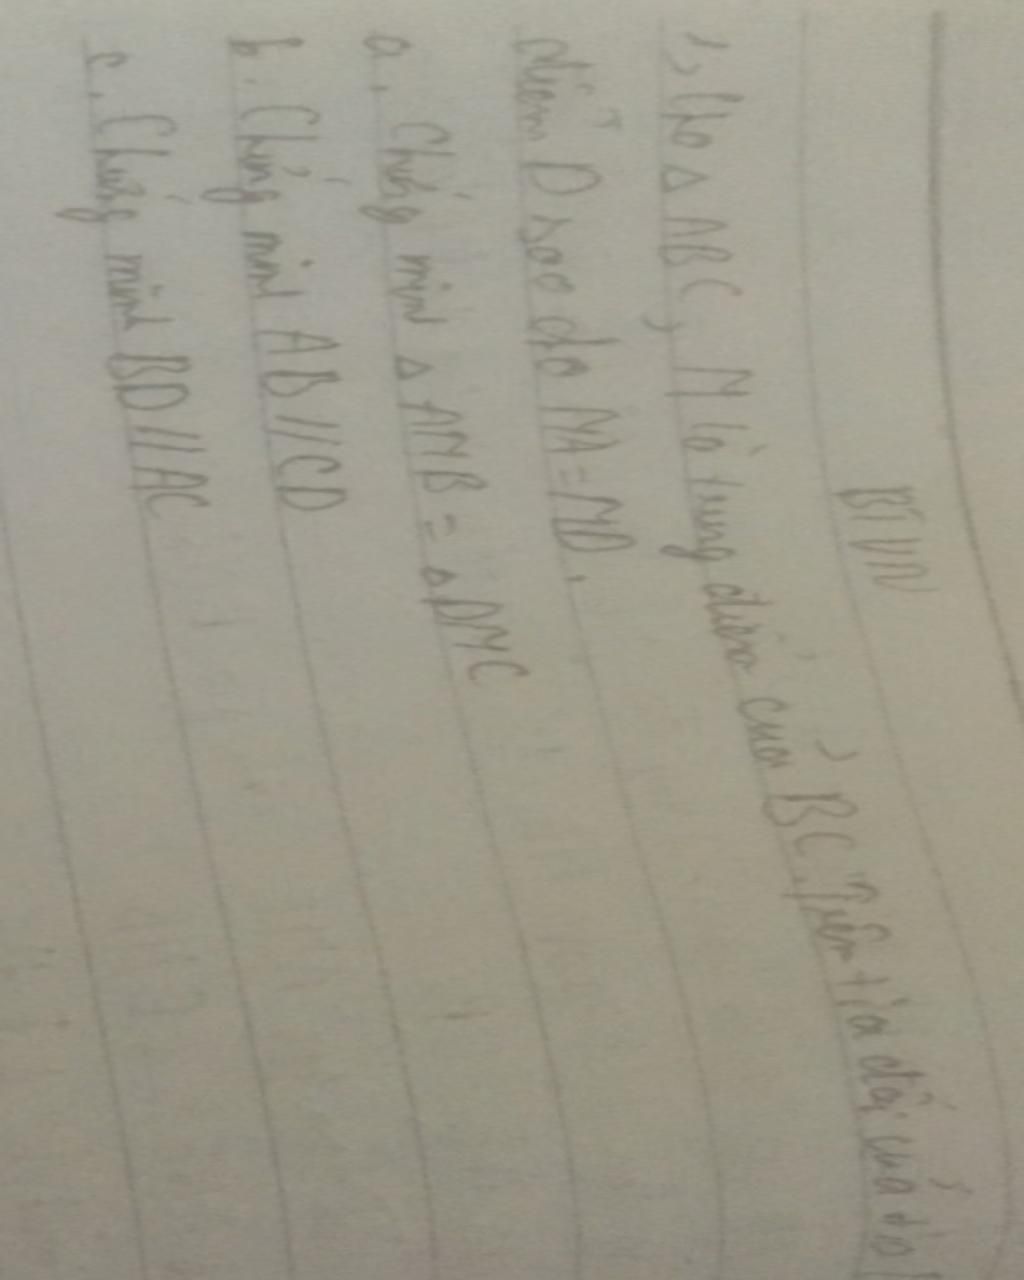 BTVN
1, Cho Δ ABC, M là trung điểm của BC. Trên tia đối của tia
điểm D sao cho MA = MD.
a. Chứng minh Δ AMB = Δ DMC
b. Chứng minh AB // CD
c. Chứng minh BD // AC